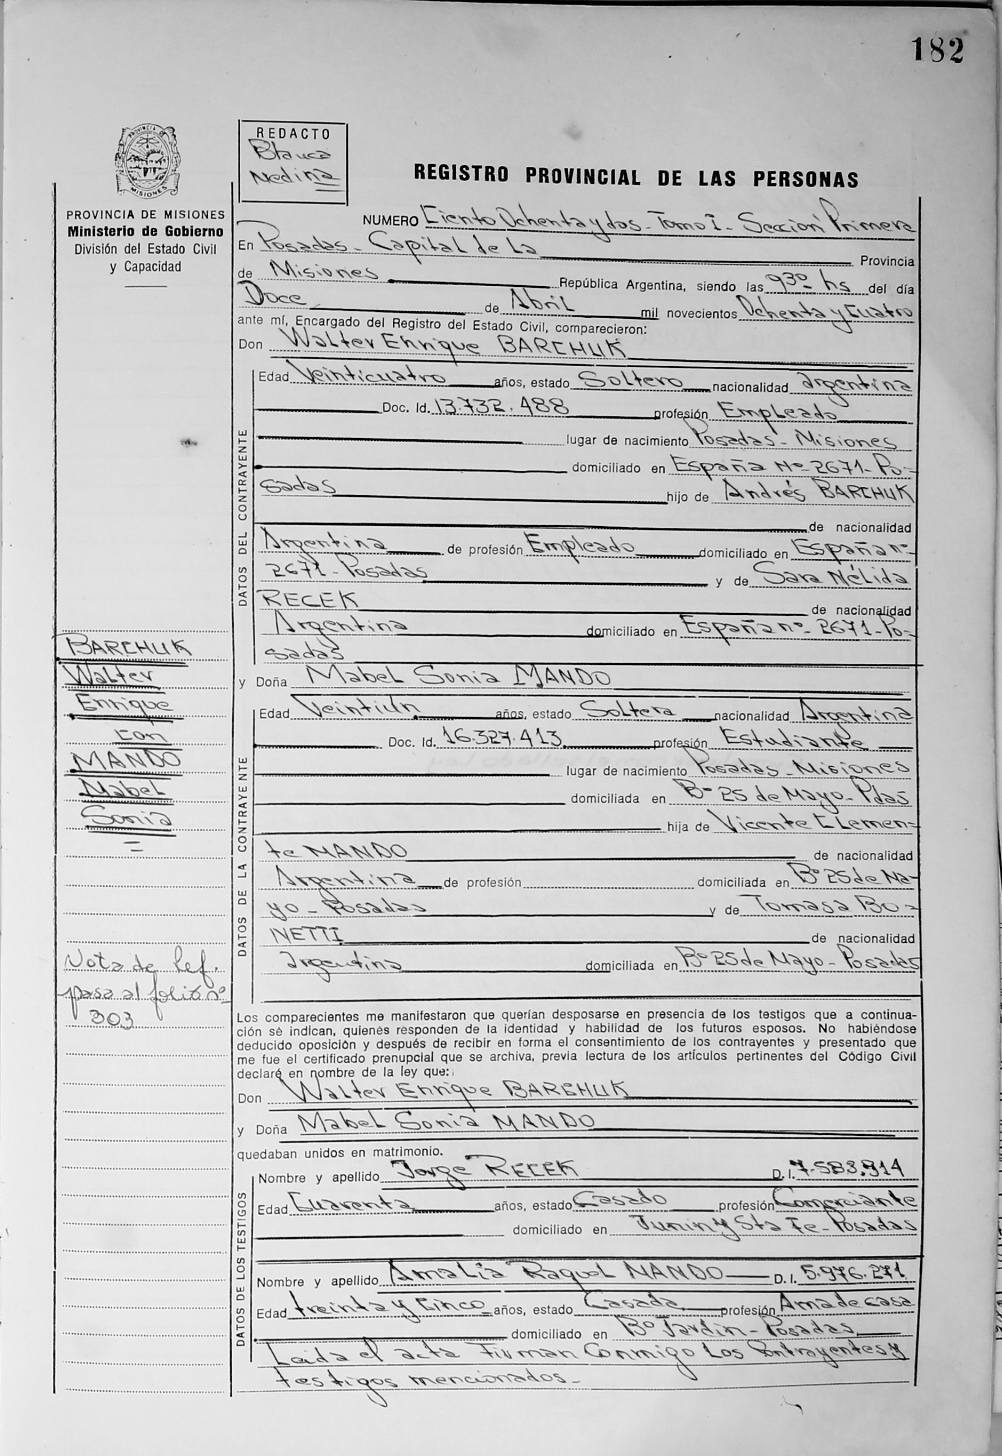 182
PROVINCIA DE
MISIONES
REDACTO
Blanca
Medina
REGISTRO PROVINCIAL DE LAS PERSONAS
PROVINCIA DE MISIONES
Ministerio de Gobierno
División del Estado Civil
y Capacidad
NUMERO Ciento Ochenta y dos - Tomo I - Sección Primera
En Posadas - Capital de La Provincia
de Misiones República Argentina, siendo las 9 30 hs del día
Doce de Abril mil novecientos Ochenta y Cuatro
ante mí, Encargado del Registro del Estado Civil, comparecieron:
Don Walter Enrique BARCHUK
DATOS DEL CONTRAYENTE
Edad Veinticuatro años, estado Soltero nacionalidad argentina
Doc. Id. 13.732.488 profesión Empleado
lugar de nacimiento Posadas - Misiones
domiciliado en España Nº 2671 - Po-
sadas hijo de Andrés BARCHUK
de nacionalidad
Argentina de profesión Empleado domiciliado en España nº
2671 - Posadas y de Sara Nélida
RECEK de nacionalidad
Argentina domiciliado en España nº 2671 - Po-
sadas
y Doña Mabel Sonia MANDO
DATOS DE LA CONTRAYENTE
Edad Veintiún años, estado Soltera nacionalidad Argentina
Doc. Id. 16.327.413 profesión Estudiante
lugar de nacimiento Posadas - Misiones
domiciliada en Bº 25 de Mayo - Pdas
hija de Vicente Clemen-
te MANDO de nacionalidad
Argentina de profesión domiciliada en Bº 25 de Ma-
yo - Posadas y de Tomasa BO-
NETTI de nacionalidad
argentina domiciliada en Bº 25 de Mayo - Posadas
BARCHUK
Walter
Enrique
con
MANDO
Mabel
Sonia
Nota de Ref.
pasa al folio nº
303
Los comparecientes me manifestaron que querían desposarse en presencia de los testigos que a continua-
ción se indican, quienes responden de la identidad y habilidad de los futuros esposos. No habiéndose
deducido oposición y después de recibir en forma el consentimiento de los contrayentes y presentado que
me fue el certificado prenupcial que se archiva, previa lectura de los artículos pertinentes del Código Civil
declaré en nombre de la ley que:
Don Walter Enrique BARCHUK
y Doña Mabel Sonia MANDO
quedaban unidos en matrimonio.
DATOS DE LOS TESTIGOS
Nombre y apellido Jorge RECEK D. I. 7.583.914
Edad Cuarenta años, estado Casado profesión Comerciante
domiciliado en Junin y Sta Fe - Posadas
Nombre y apellido Amalia Raquel MANDO D. I. 5.976.271
Edad treinta y Cinco años, estado Casada profesión Ama de casa
domiciliado en Bº Jardin - Posadas
Leida el acta Firman Conmigo Los Contrayentes y
testigos mencionados -